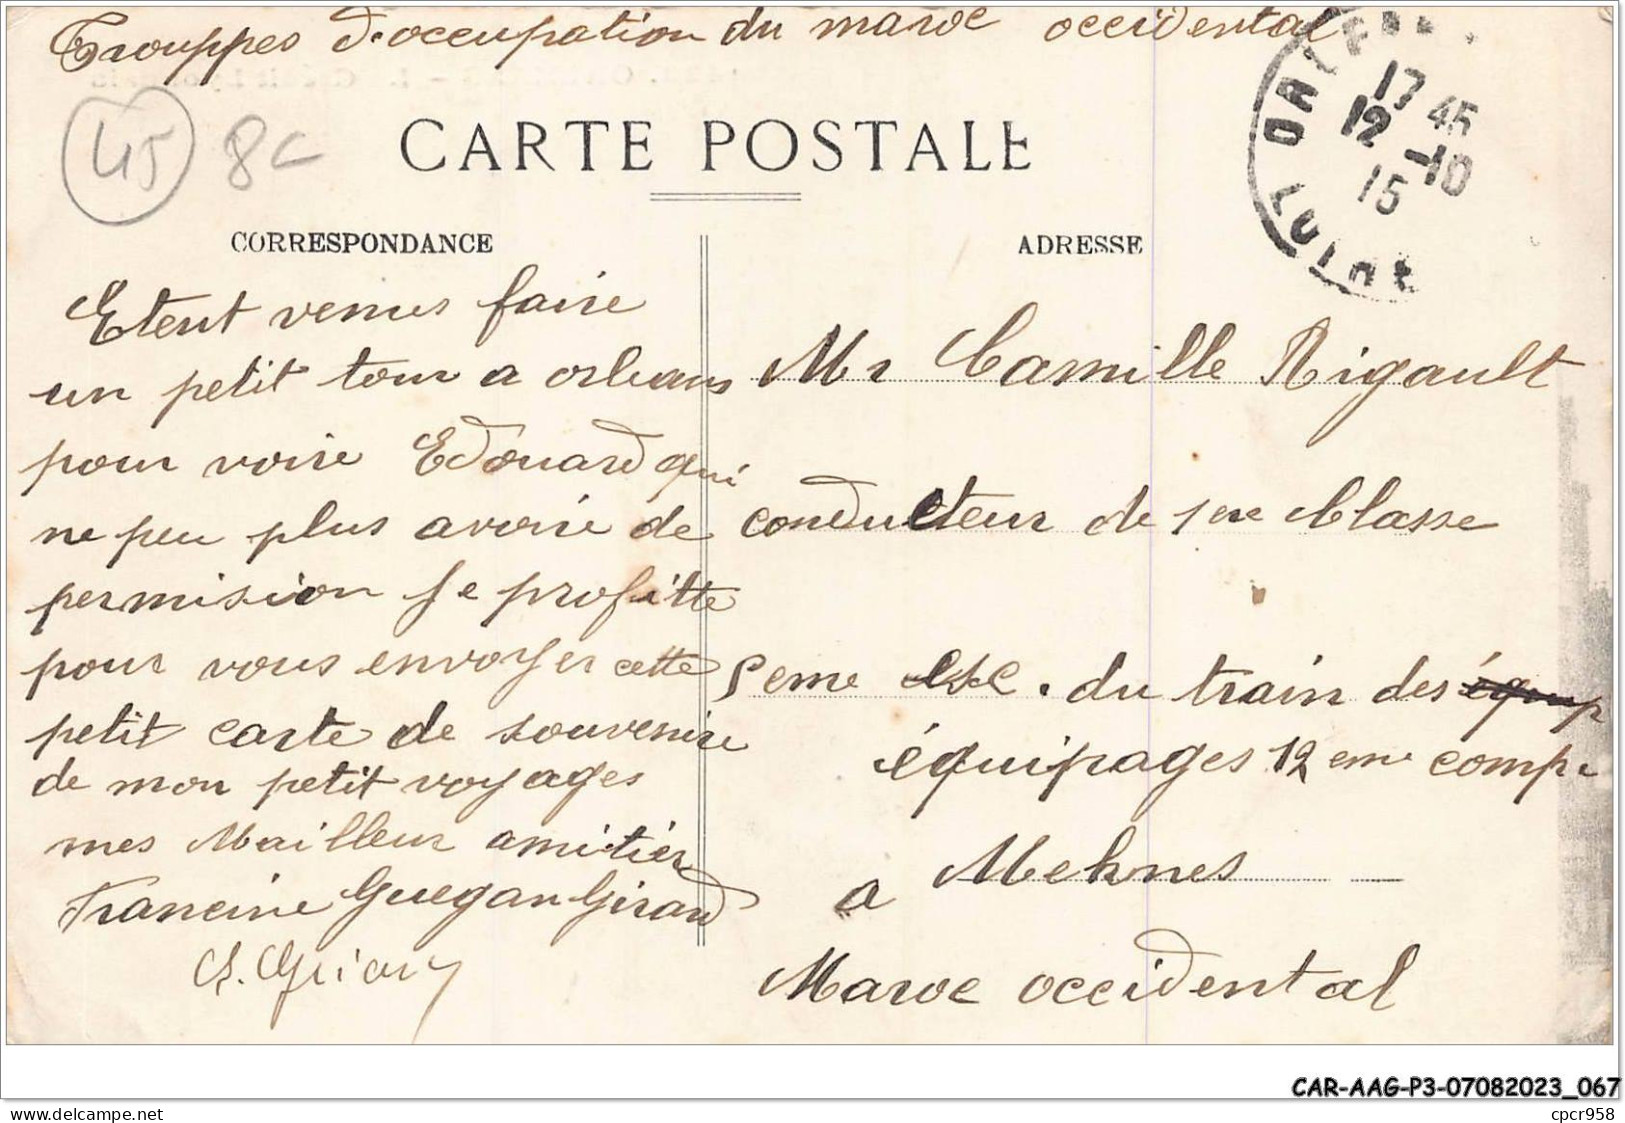 Trouppes d'occupation du maroc occidental
45 8c
CARTE POSTALE
17 45
12 -10
15
CORRESPONDANCE
ADRESSE
Etent venus faire
un petit tour a orleans
pour voire Edouard qui
ne peu plus avoire de
permision je profitte
pour vous envoyer cette
petit carte de souvenire
de mon petit voyages
mes Mailleur amitiér
Francine Guegan Girard
Mr Camille Rigault
conducteur de 1ere Classe
5eme esc. du train des équip
équipages 12 eme comp.
a Meknes
Maroc occidental
CAR-AAG-P3-07082023_067
cpcr958